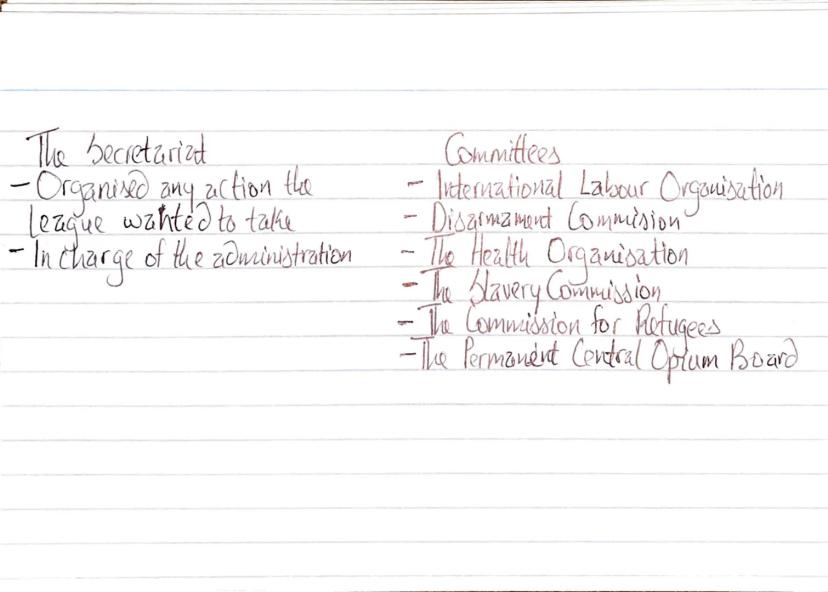 The Secretariat
- Organised any action the
league wanted to take
- In charge of the administration
Committees
- International Labour Organisation
- Disarmament Commision
- The Health Organisation
- The Slavery Commission
- The Commission for Refugees
- The Permanent Central Opium Board